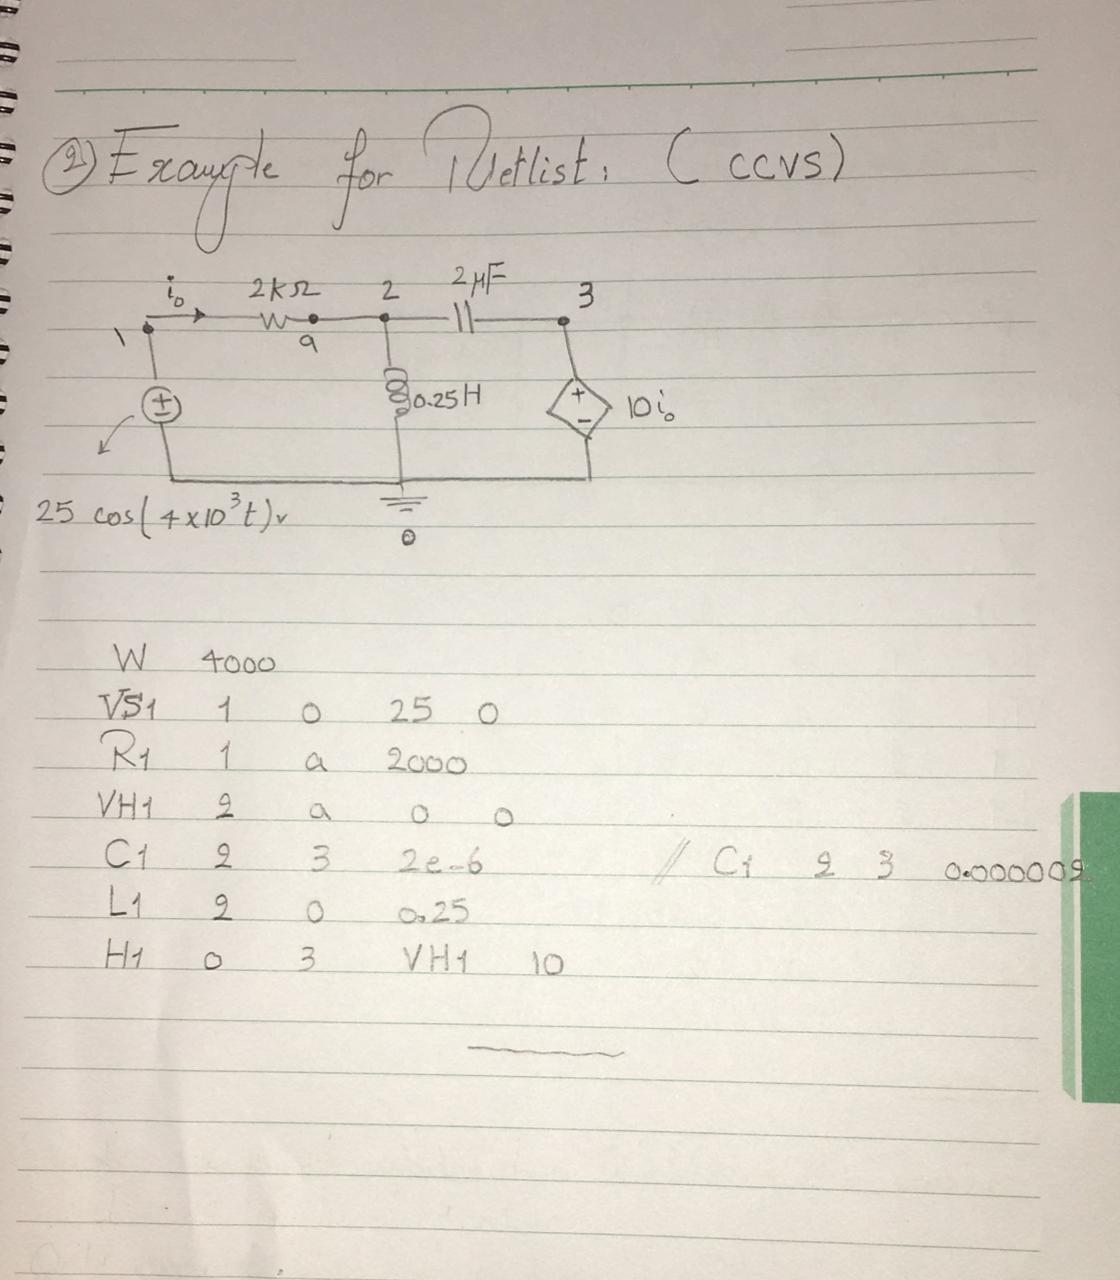 2) Example for Netlist. ( CCVS )
i₀ 2kΩ 2 2μF 3
1 a
+ - 0.25H + - 10i₀
25 cos(4×10³t)v
0
W 4000
VS1 1 0 25 0
R1 1 a 2000
VH1 2 a 0 0
C1 2 3 2e-6 // C1 2 3 0.000002
L1 2 0 0.25
H1 0 3 VH1 10